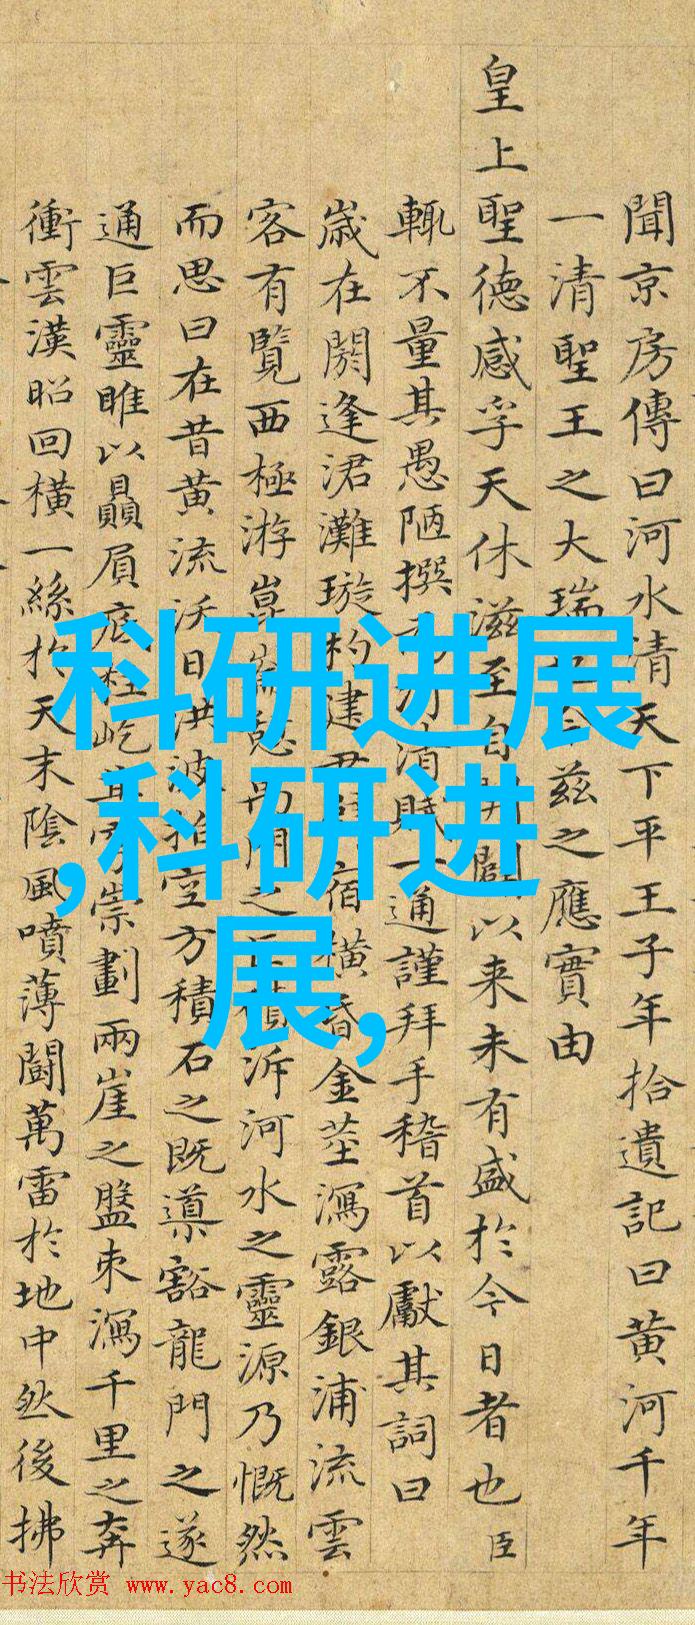 聞京房傳曰河水清天下平王子年拾遺記曰黃河千年
一清聖王之大瑞茲之應實由
皇上聖德感孚天休滋至自開闢以来未有盛於今日者也臣
輒不量其愚陋撰清賦一通謹拜手稽首以獻其詞曰
歲在閼逢涒灘璇杓建宿橫昏金莖瀉露銀浦流雲
客有覽西極游崑崙之泝河水之靈源乃慨然
而思曰在昔黃流沃日洪波拍空方積石之既導豁龍門之遂
通巨靈雎以贔屓底柱屹崇劃兩崖之盤束瀉千里之奔
衝雲漢昭回橫一絲於天末陰風噴薄鬭萬雷於地中然後拂
科研进展
,科研进
展,
书法欣赏 www.yac8.com